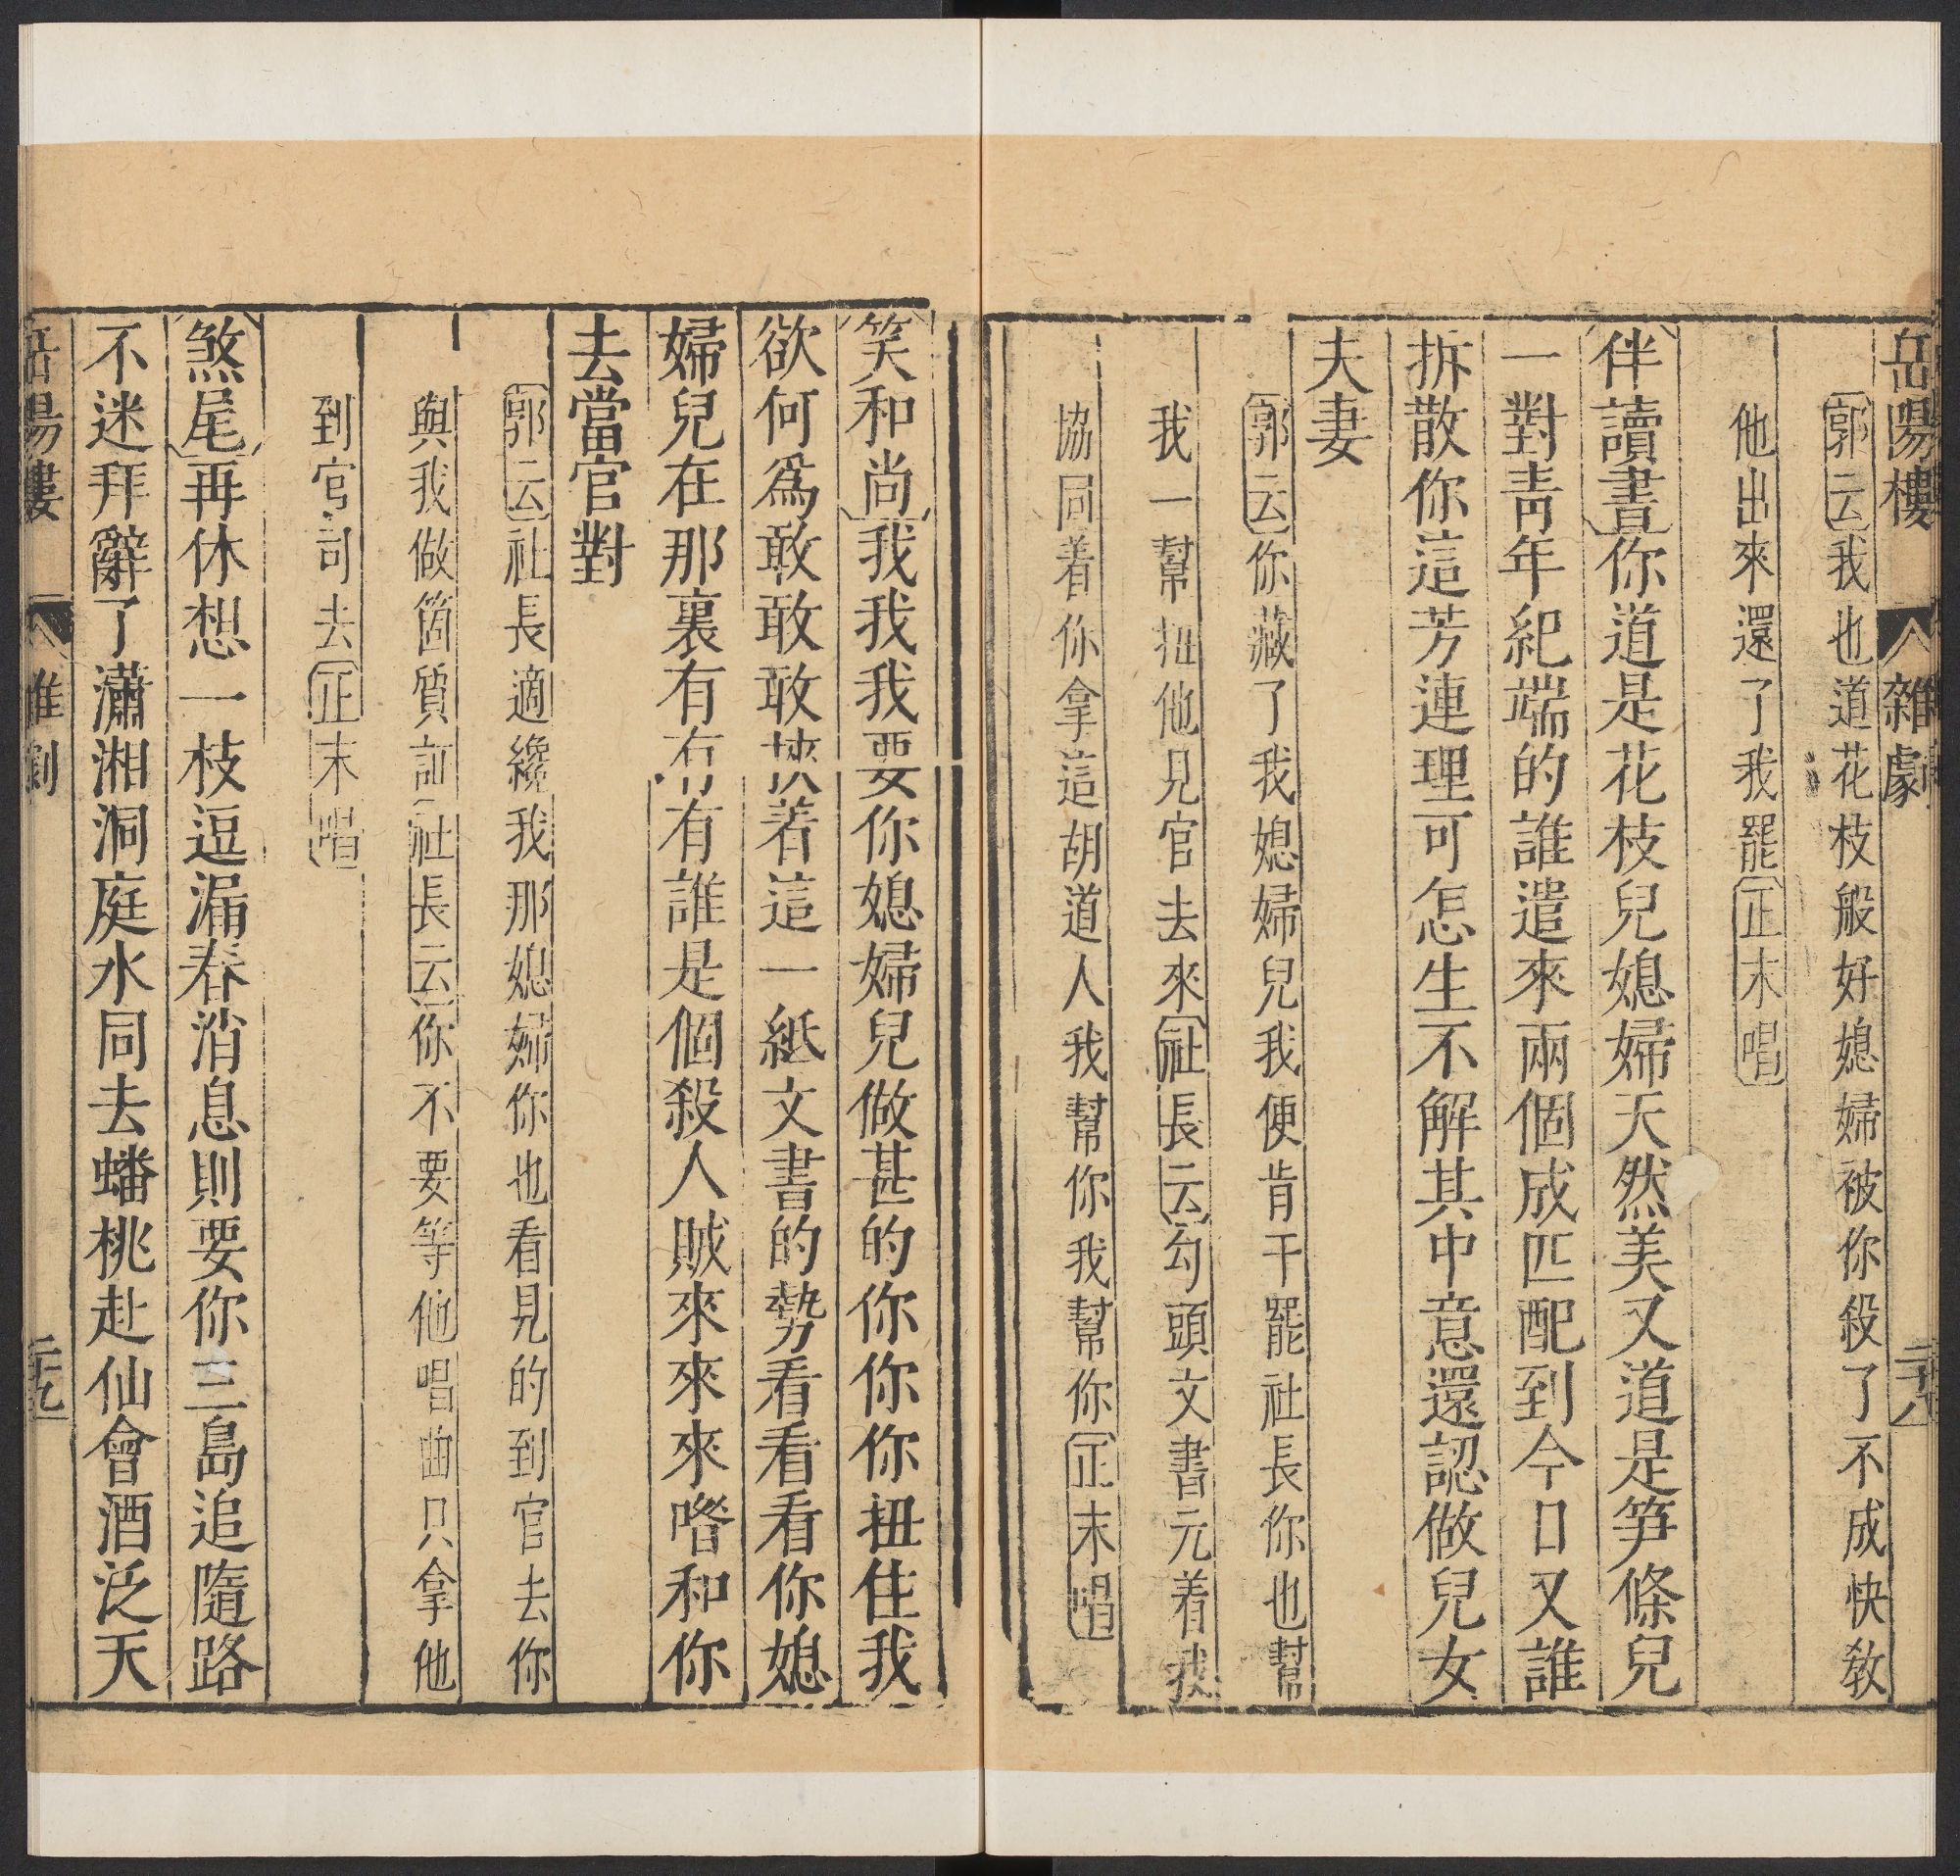 岳陽樓 雜劇 二十八
郭云我也道花枝般好媳婦被你殺了不成快敎
他出來還了我罷正末唱
伴讀書你道是花枝兒媳婦天然美又道是笋條兒
一對青年紀端的誰遣來兩個成匹配到今日又誰
拆散你這芳連理可怎生不解其中意還認做兒女
夫妻
郭云你藏了我媳婦兒我便肯干罷社長你也幫
我一幫扭他見官去來社長云勾頭文書元着我
協同着你拿這胡道人我幫你我幫你正末唱
笑和尚我我我要你媳婦兒做甚的你你你扭住我
欲何爲敢敢敢挾着這一紙文書的勢看看看你媳
婦兒在那裏有有有誰是個殺人賊來來來喒和你
去當官對
郭云社長適纔我那媳婦你也看見的到官去你
與我做箇質証社長云你不要等他唱曲只拿他
到官司去正末唱
煞尾再休想一枝逗漏春消息則要你三島追隨路
不迷拜辭了瀟湘洞庭水同去蟠桃赴仙會酒泛天
岳陽樓 雜劇 二十九